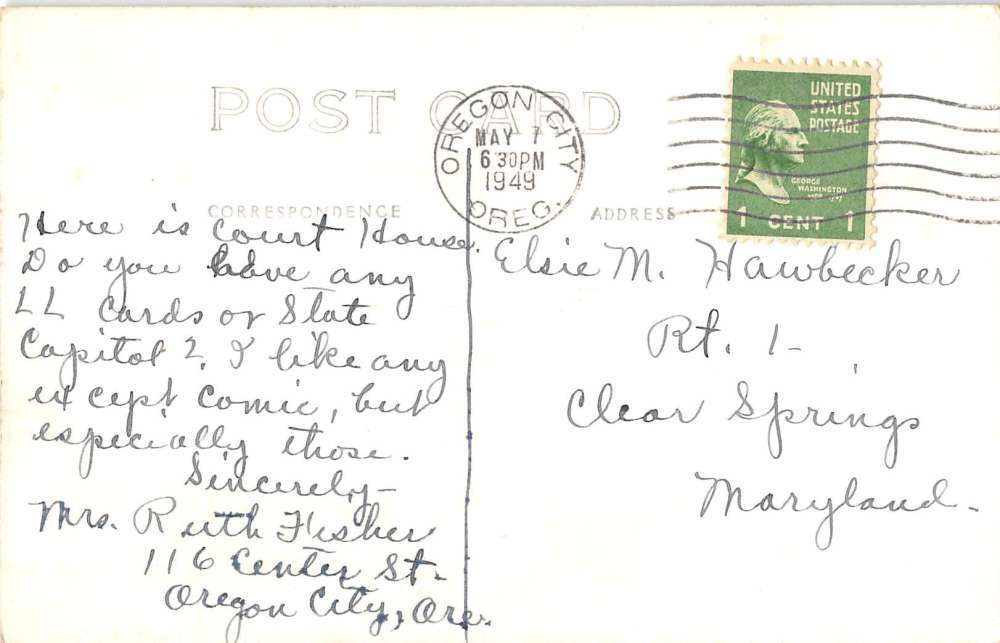 POST CARD
OREGON CITY
MAY 7
6 30 PM
1949
OREG.
UNITED
STATES
POSTAGE
GEORGE
WASHINGTON
1 CENT 1
CORRESPONDENCE
ADDRESS
Here is Court House.
Do you have any
LL Cards or State
Capitol? I like any
except comic, but
especially those.
Sincerely—
Mrs. Ruth Fisher
116 Center St.
Oregon City, Ore.
Elsie M. Hawbecker
Rt. 1—
Clear Springs
Maryland.